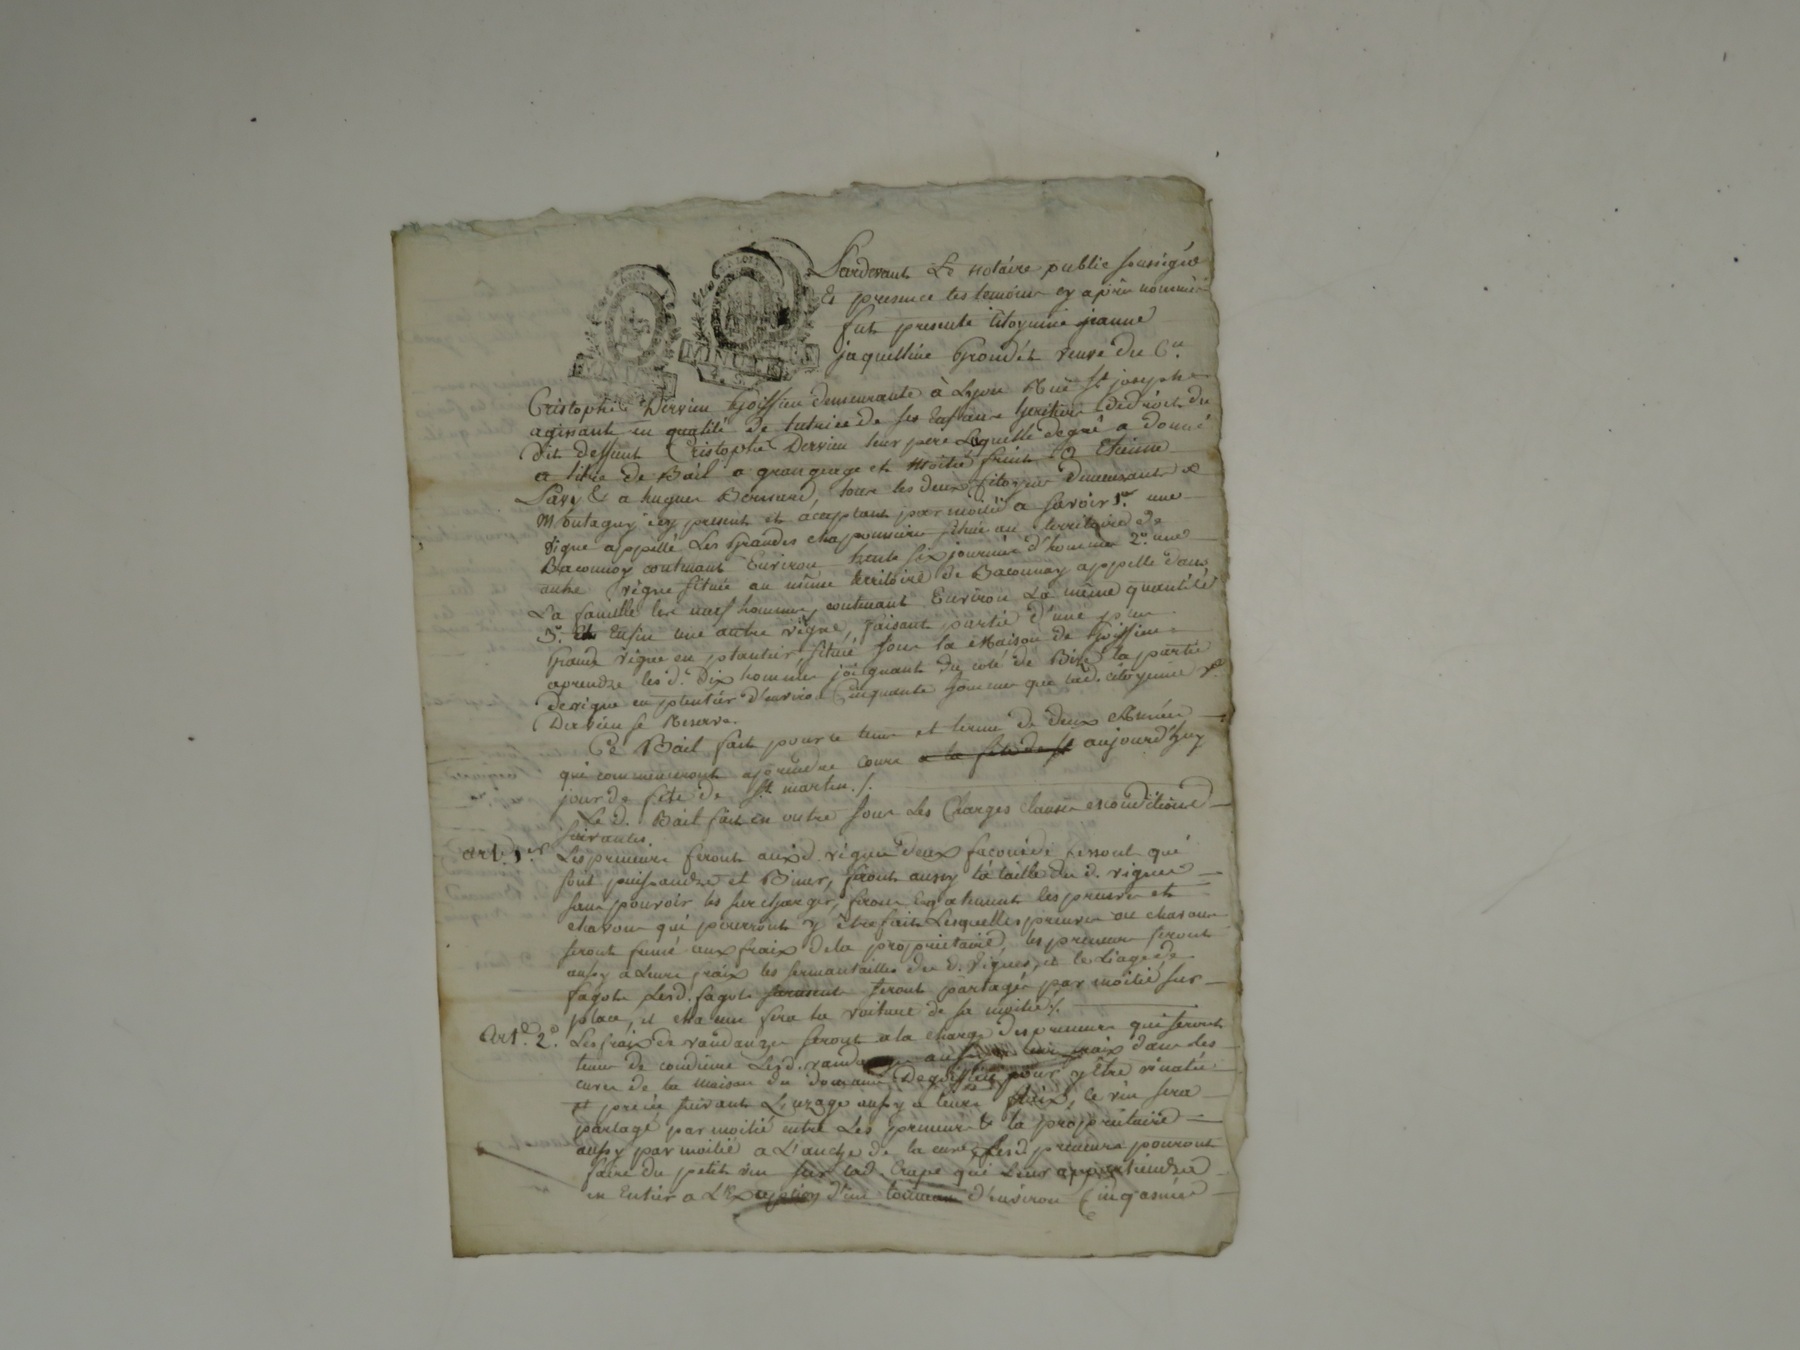 Pardevant Le notaire public soussigné
Et presence tes temoins cy après nommés
fut presente Citoyenne jeanne
jaquelline veuve du C.en
Cristophe Dervieu demeurante à Lyon Rue St joseph
agissante en qualité de tutrice de ses Enfans heritiers de droit du
dit deffunt Cristophe Dervieu leur pere Laquelle degré a donné
a titre de Bail a grangeage et Moitié fruit a Etienne
& a hugues tous les deux Citoyens demeurants a
Montagny icy present et aceptant par moitié a savoir 1.er une
vigne appellé Les Grandes située au territoire de
Baconnoy contenant Environ trente six journée d'hommes 2.º une
autre vigne située au même territoire de Baconnay appelle dans
La famille les neuf hommes, contenant Environ La même quantité
3.º Et Enfin une autre vigne, faisant partie d'une
Grande vigne en plantier située sous la Maison de
aprendre les d. Dix hommes joignant du coté de Bize la partie
de vigne en plentier d'environ Cinquante hommes que lad. citoyenne v.e
Dervieu se Reserve.
Ce Bail fait pour le tems et terme de deux Années
qui commenceront aprendre cours a la fete de st aujourd'huy
jour de fete de St martin ./.
Le d. Bail fait en outre sous Les Charges clauses & Conditions
suivantes.
art. 1.er Les preneurs feront auxd. vignes deux façons de fessout qui
sont et Biner, feront aussy la taille desd. vignes
sans pouvoir les surcharger, feront les preuves et
qui pourront y être fait Lesquelles preuves ou
seront fumé aux fraix de la propriétaire, les preneurs feront
aussy a Leurs fraix les sermantailles des d. vignes, et le Liage de
fagots Lesd. fagots seront partagés par moitié sur
place, et chacun fera la voiture de sa moitié ./.
Art.e 2.e Les fraix de vandanges seront a la charge des preneurs qui seront
tenus de conduire Lesd. dans Les
cuves de la maison du domaine pour y être
et suivant L'uzage aussy a leurs fraix, le vin sera
partagé par moitié entre Les preneurs & la propriétaire
aussy par moitié a L'anche de la cuve, Lesd preneurs pouront
faire du petit vin sur lad. Crape qui Leurs appartiendra
en Entier a L'Exception d'un tonneau d'environ Cinq anées